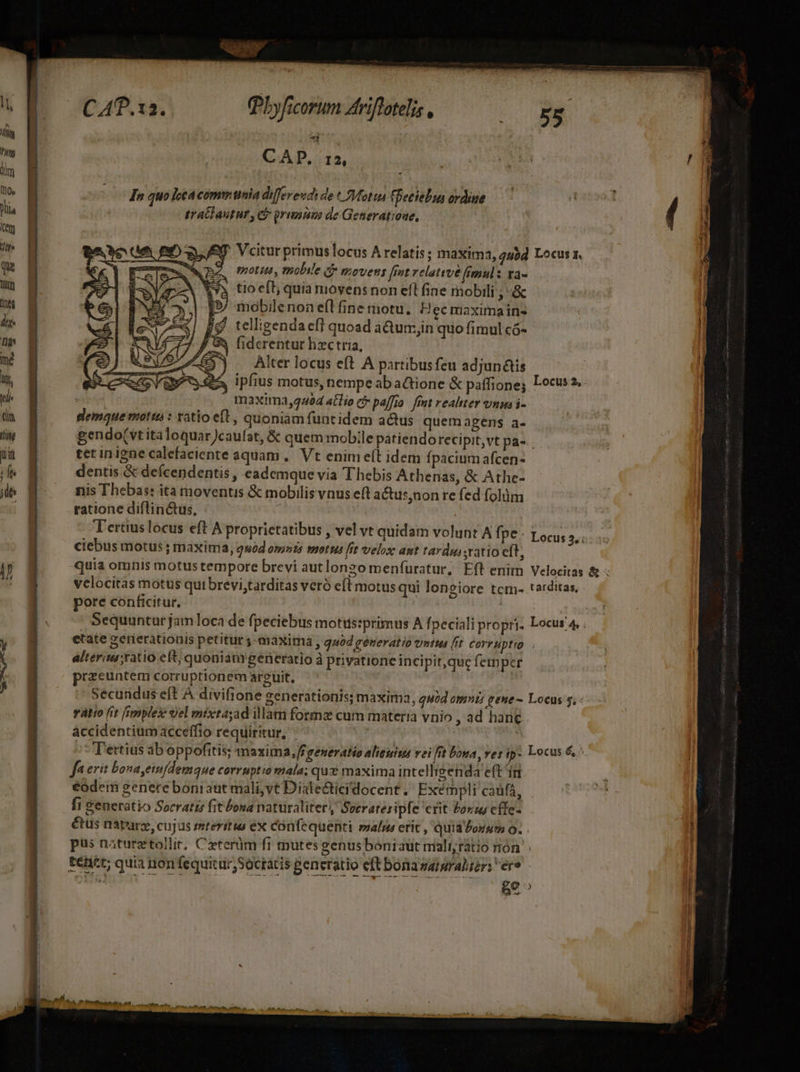 CAP.12. Physicorum Aristotelis, 55
CAP. 12,
In quo loca communia differendi de Motus speciebus ordine
tractantur, & primùm de Generatione.
Vcitur primus locus A relatis; maxima, quòd Locus 1.
motus, mobile & movens sint relativè simul: ra-
tio est, quia movens non est sine mobili, &
mobile non est sine motu. Hæc maxima in-
telligenda est quoad actum, in quo simul cõ-
siderentur hæc tria,
Alter locus est A partibus seu adjunctis
ipsius motus, nempe ab actione & passione; Locus 2,
maxima, quòd actio & passio sint realiter unus i-
demque motus: ratio est, quoniam sunt idem actus quem agens a-
gendo (vt ita loquar) causat, & quem mobile patiendo recipit, vt pa-
tet in igne calefaciente aquam. Vt enim est idem spacium ascen-
dentis & descendentis, eademque via Thebis Athenas, & Athe-
nis Thebas: ita moventis & mobilis vnus est actus, non re sed solùm
ratione distinctus,
Tertius locus est A proprietatibus, vel vt quidam volunt A spe- Locus 3,
ciebus motus; maxima, quod omnis motus sit velox aut tardus; ratio est,
quia omnis motus tempore brevi aut longo mensuratur, Est enim Velocitas &
velocitas motus qui brevi, tarditas verò est motus qui longiore tem- tarditas,
pore conficitur.
Sequuntur jam loca de speciebus motus: primus A speciali propri- Locus 4,
etate generationis petitur; maxima, quòd generatio unius sit corruptio
alterius; ratio est, quoniam generatio à privatione incipit, quę semper
præeuntem corruptionem arguit.
Secundus est A divisione generationis; maxima, quòd omnis gene- Locus 5,
ratio sit simplex vel mixta; ad illam formæ cum materia vnio, ad hanc
accidentium accessio requiritur,
Tertius ab oppositis; maxima, si generatio alicuius rei sit bona, res ip- Locus 6,
sa erit bona, eiusdemque corruptio mala; quæ maxima intelligenda est in
eodem genere boni aut mali, vt Dialectici docent. Exempli causâ,
si generatio Socratis sit bona naturaliter, Socrates ipse erit bonus effe-
ctus naturæ, cujus interitus ex consequenti malus erit, quia bonum o-
pus naturæ tollit, Cæterùm si mutes genus boni aut mali, ratio non
tenet; quia non sequitur, Socratis generatio est bona naturaliter; er-
go